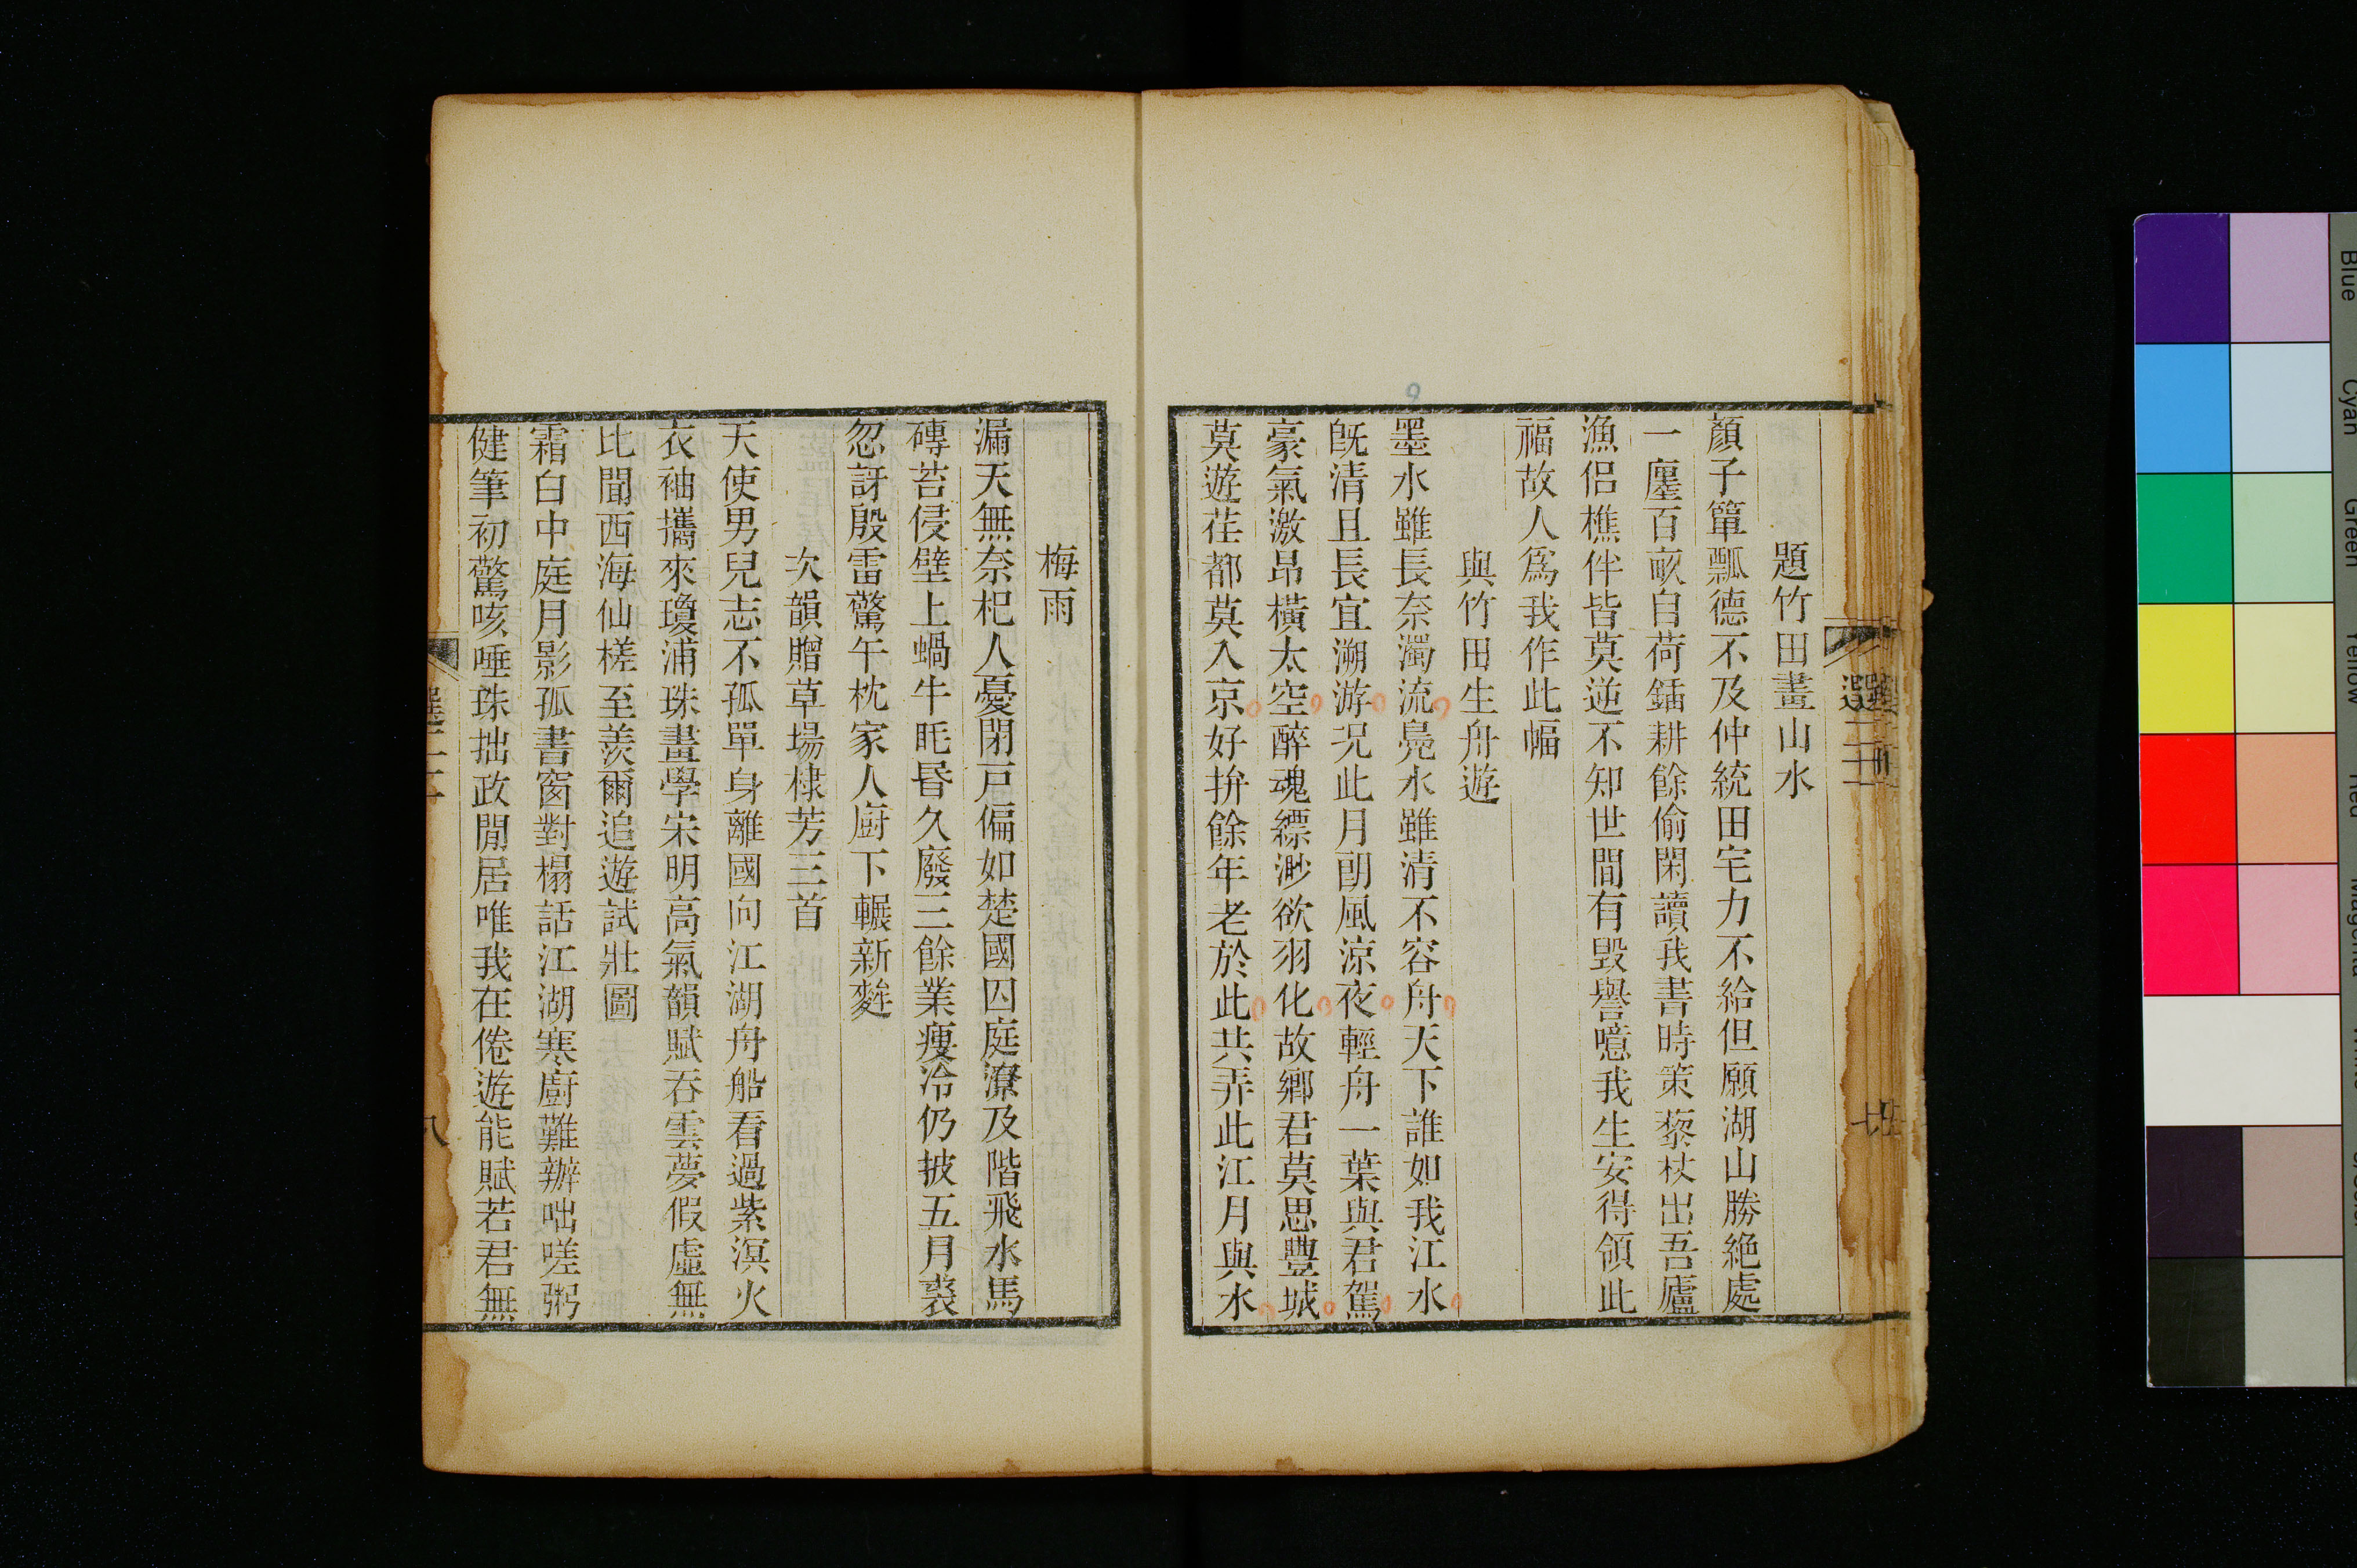 題竹田畫山水
顏子簞瓢德不及仲統田宅力不給但願湖山勝絶處
一廛百畝自荷鍤耕餘偷閑讀我書時策藜杖出吾廬
漁侶樵伴皆莫逆不知世間有毀譽噫我生安得領此
福故人爲我作此幅
與竹田生舟遊
墨水雖長奈濁流鳧水雖清不容舟天下誰如我江水
旣清且長宜溯游况此月朗風涼夜輕舟一葉與君駕
豪氣激昂橫太空醉魂縹渺欲羽化故鄉君莫思豐城
莫遊荏都莫入京好拚餘年老於此共弄此江月與水
梅雨
漏天無奈杞人憂閉戸偏如楚國囚庭潦及階飛水馬
磚苔侵壁上蝸牛眊昬久廢三餘業痩冷仍披五月裘
忽訝殷雷驚午枕家人廚下輾新麰
次韻贈草場棣芳三首
天使男兒志不孤單身離國向江湖舟船看過紫溟火
衣袖攜來瓊浦珠畫學宋明高氣韻賦吞雲夢假虛無
比聞西海仙槎至羨爾追遊試壯圖
霜白中庭月影孤書窗對榻話江湖寒廚難辦咄嗟粥
健筆初驚咳唾珠拙政閒居唯我在倦遊能賦若君無
八
Blue
Cyan
Green
Yellow
Red
Magenta
White